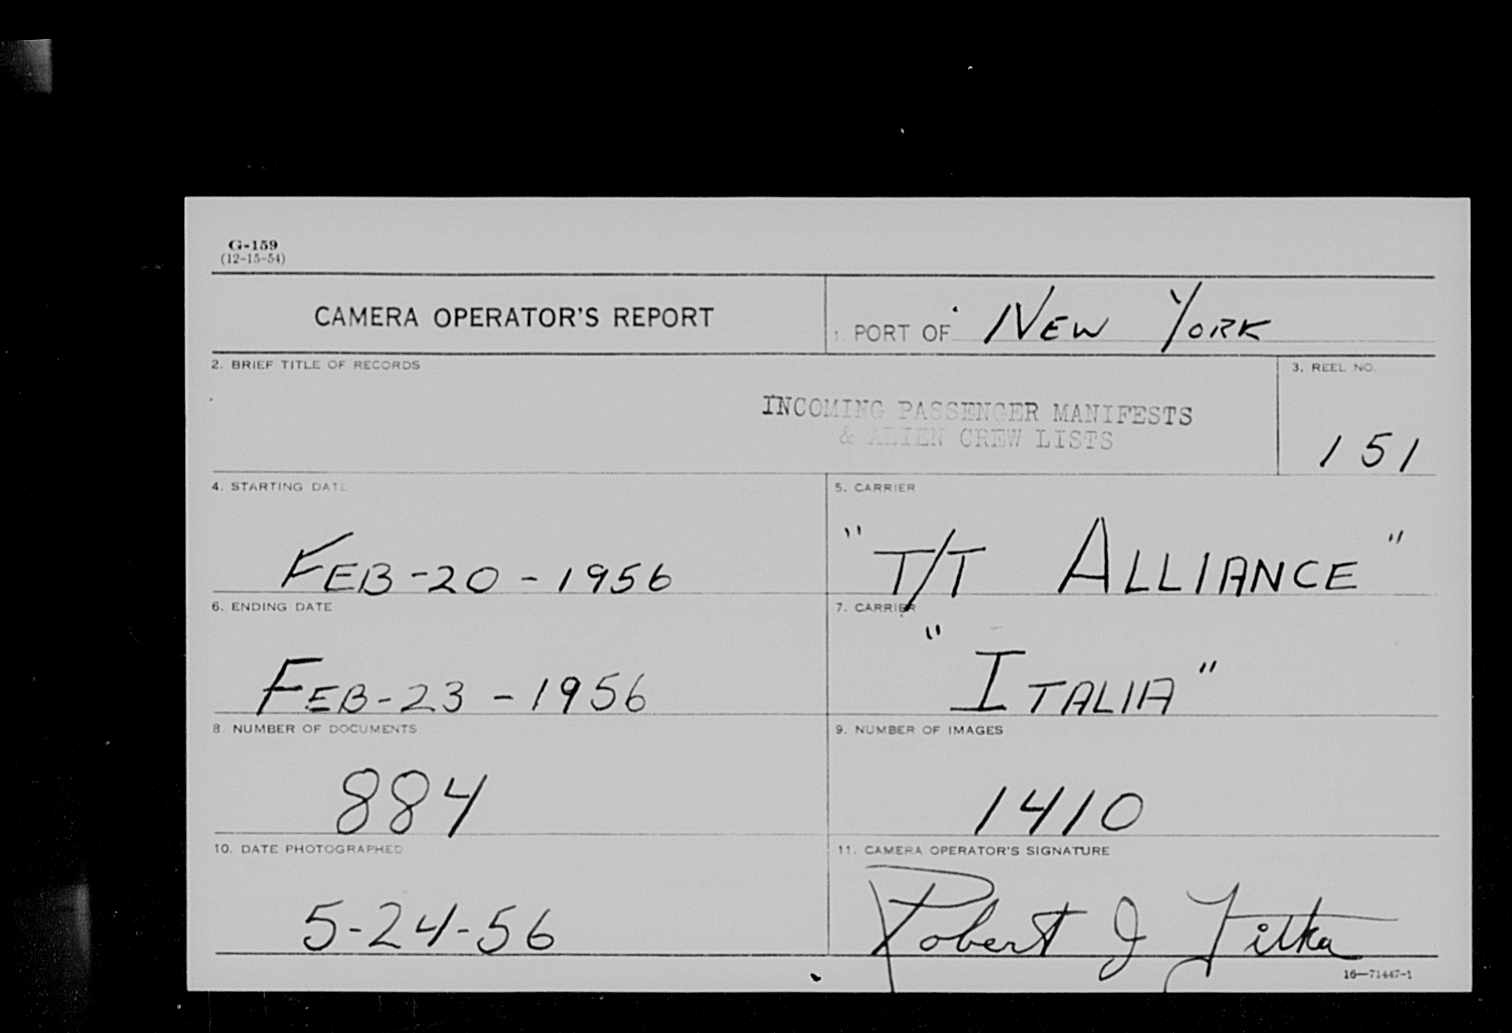 G-159
(12-15-54)
CAMERA OPERATOR'S REPORT
1. PORT OF New York
2. BRIEF TITLE OF RECORDS
INCOMING PASSENGER MANIFESTS
& ALIEN CREW LISTS
3. REEL NO.
151
4. STARTING DATE
FEB-20-1956
5. CARRIER
"T/T ALLIANCE"
6. ENDING DATE
FEB-23-1956
7. CARRIER
"ITALIA"
8. NUMBER OF DOCUMENTS
884
9. NUMBER OF IMAGES
1410
10. DATE PHOTOGRAPHED
5-24-56
11. CAMERA OPERATOR'S SIGNATURE
Robert J
16—71447-1